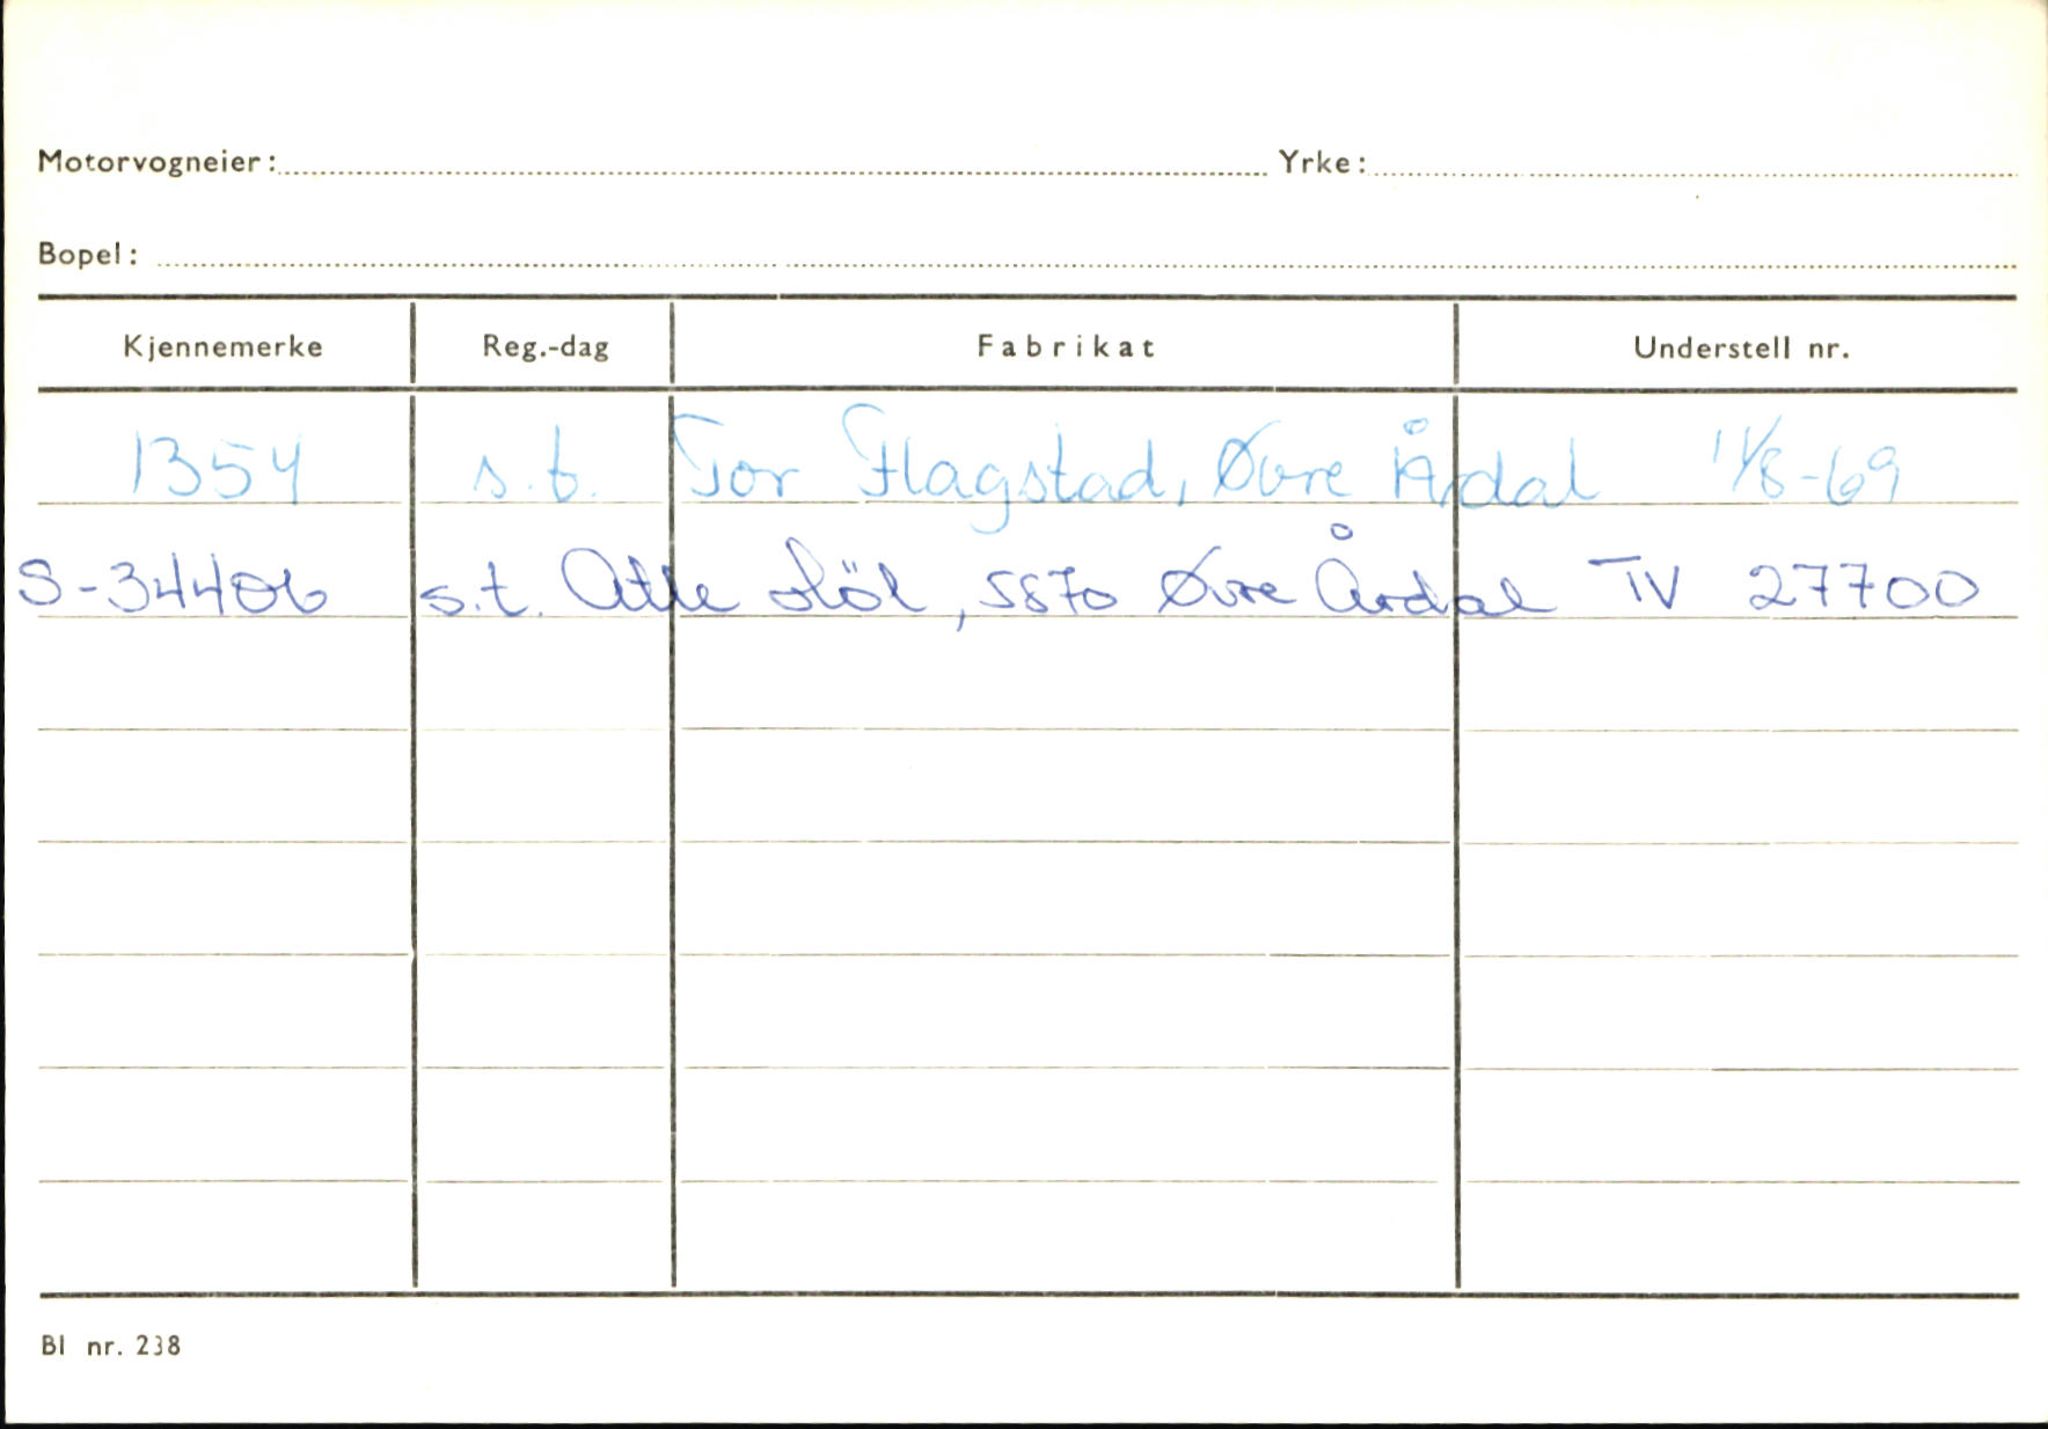 Motorvogneier: Yrke:
Bopel:
Kjennemerke Reg.-dag Fabrikat Understell nr.
1354 s.t. Tor Flagstad, Øvre Årdal 11/8-69
S-34406 s.t. Atle 5870 Øvre Årdal TV 27700
Bl nr. 238